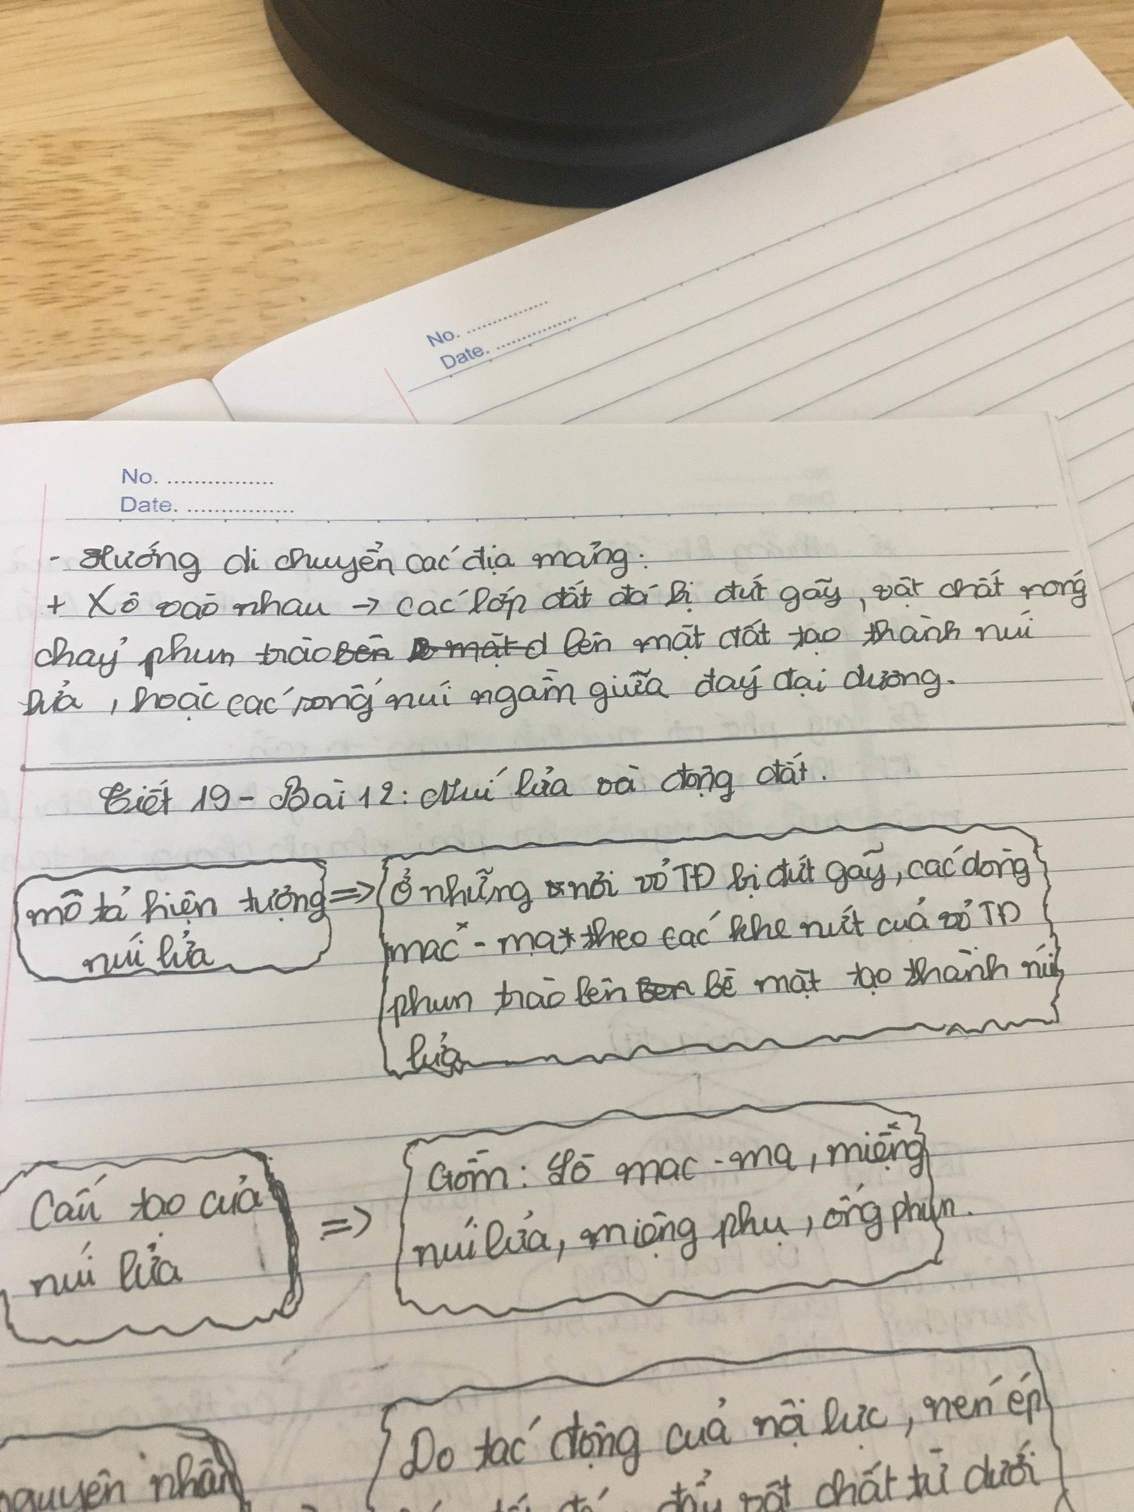 No. ................
Date. ................
No. ................
Date. ................
- Hướng di chuyển các địa mảng:
+ Xô vào nhau → các lớp đất đá bị đứt gãy, vật chất nóng
chảy phun trào lên mặt đất tạo thành núi
lửa, hoặc các sống núi ngầm giữa đáy đại dương.
Tiết 19 - Bài 12: Núi lửa và động đất.
mô tả hiện tượng
núi lửa
=>
Ở những nơi vỏ TĐ bị đứt gãy, các dòng
mac-ma theo các khe nứt của vỏ TĐ
phun trào lên bề mặt tạo thành núi
lửa
Cấu tạo của
núi lửa
=>
Gồm: Lò mac-ma, miệng
núi lửa, miệng phụ, ống phun.
nguyên nhân
Do tác động của nội lực, nén ép
đẩy vật chất từ dưới